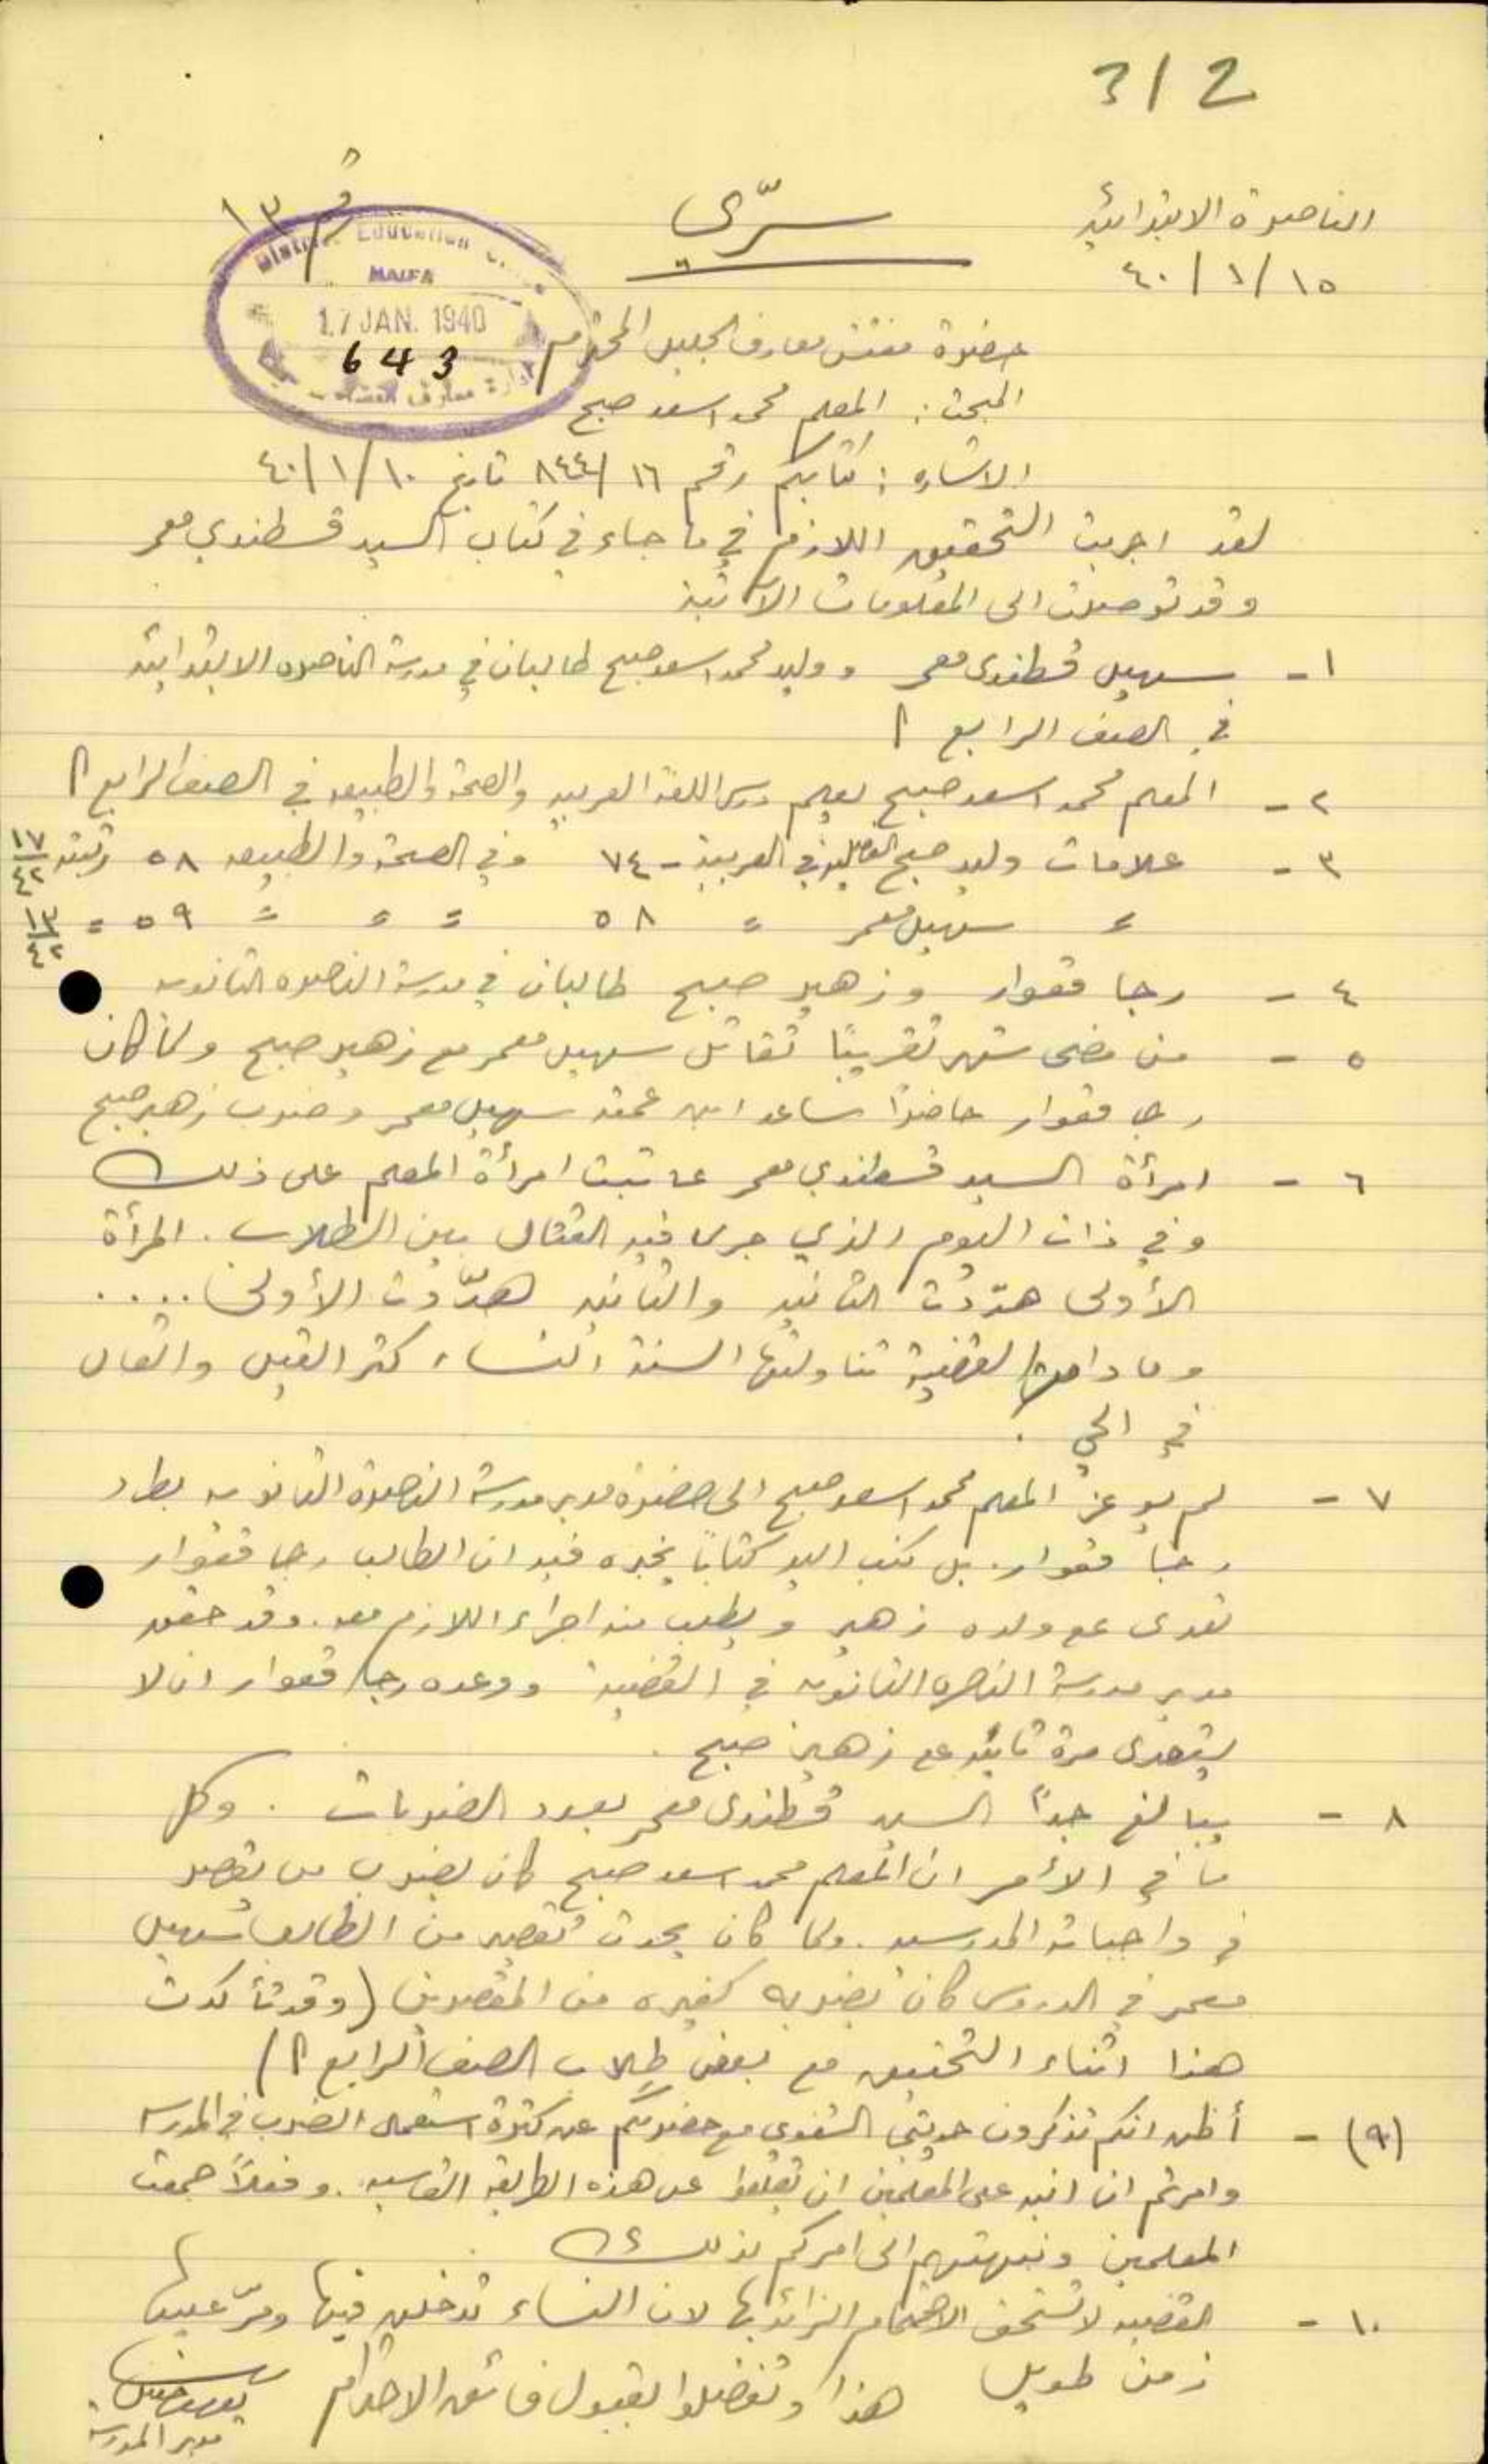 312
الناصرة الابتدائية
١٥/١/٤٠
سرّي
رقم ١٣
District Education
HAIFA
17 JAN. 1940
643
حضرة مفتش معارف الجليل المحترم
المبحث: المعلم محمد اسعد صبح
الاشاره: كتابكم رقم ١٦/٨٤٤ تاريخ ١٠/١/٤٠
لقد اجريت التحقيق اللازم في ما جاء في كتاب السيد قسطندي معمر
وقد توصلت الى المعلومات الآتية
١- سهيل قسطندي معمر ووليد محمد اسعد صبح طالبان في مدرسة الناصره الابتدائية
في الصف الرابع أ
٢- المعلم محمد اسعد صبح يعلم درس اللغة العربيه والصحة والطبيعه في الصف الرابع أ
٣- علامات وليد صبح الفصليه في العربية - ٧٤ وفي الصحة والطبيعه ٥٨ رتبته ١٧/٤٢
= سهيل معمر = ٥٨ = = = ٥٩ = ١٣/٤٢
٤- رجا قعوار وزهير صبح طالبان في مدرسة الناصره الثانويه
٥- من مضى شهر تقريبًا تقاتل سهيل معمر مع زهير صبح ولما كان
رجا قعوار حاضرًا ساعد ابن عمته سهيل معمر وضرب زهير صبح
٦- امرأة السيد قسطندي معمر عاتبت امرأة المعلم على ذلك
وفي ذات اليوم الذي جرى فيه القتال بين الطلاب. المرأة
الأولى هدّدت الثانيه والثانيه هدّدت الأولى....
وما دامت القضية تناولتها السنة النساء كثر القيل والقال
في الحي.
٧- لم يوعز المعلم محمد اسعد صبح الى حضرة مدير مدرسة الناصرة الثانويه بطرد
رجا قعوار. بل كتب اليه كتابًا يخبره فيه ان الطالب رجا قعوار
تعدى على ولده زهير ويطلب منه اجراء اللازم معه. وقد حقق
مدير مدرسة الناصره الثانويه في القضيه ووعده رجا قعوار ان لا
يتعدى مرة ثانيه على زهير صبح.
٨- يبالغ جدًا السيد قسطندي معمر بعدد الضربات. وكل
ما في الأمر ان المعلم محمد اسعد صبح كان يضرب من يقصر
في واجباته المدرسيه. ولما كان يحدث تقصير من الطالب سهيل
معمر في الدروس كان يضربه كغيره من المقصرين (وقد تأكدت
هذا اثناء التحقيق مع بعض طلاب الصف الرابع أ)
(٩)- أظن انكم تذكرون حديثي الشفوي مع حضرتكم عن كثرة استعمال الضرب في المدرسه
وامرتم ان انبه على المعلمين ان يقلعوا عن هذه الطريقه القاسيه. وفعلاً جمعت
المعلمين ونبهتهم الى امركم بذلك
١٠- القضيه لا تستحق الاهتمام الزائد بها لان النساء تدخلن فيها ومرّ عليها
زمن طويل
هذا وتفضلوا بقبول فائق الاحترام
مدير المدرسه